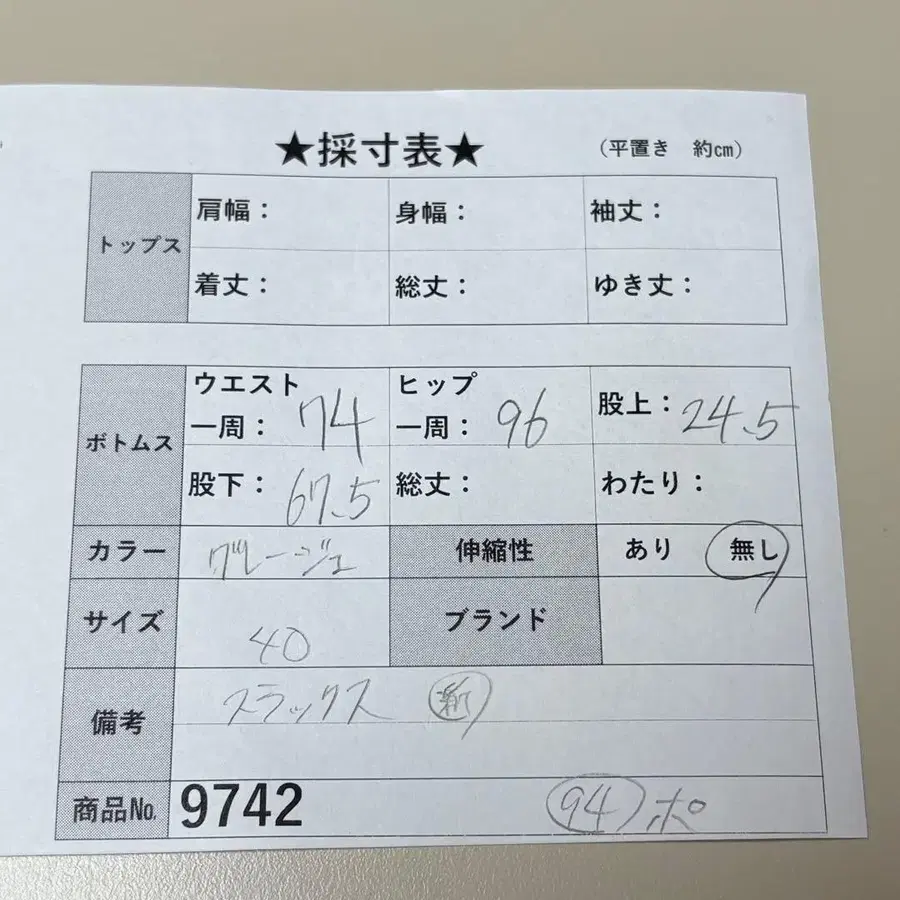 ★採寸表★ (平置き 約㎝)
トップス
肩幅: 身幅: 袖丈:
着丈: 総丈: ゆき丈:
ボトムス
ウエスト ヒップ
一周: 74 一周: 96 股上: 24.5
股下: 67.5 総丈: わたり:
カラー グレージュ 伸縮性 あり 無し
サイズ 40 ブランド
備考 スラックス
商品No. 9742 94 ポ